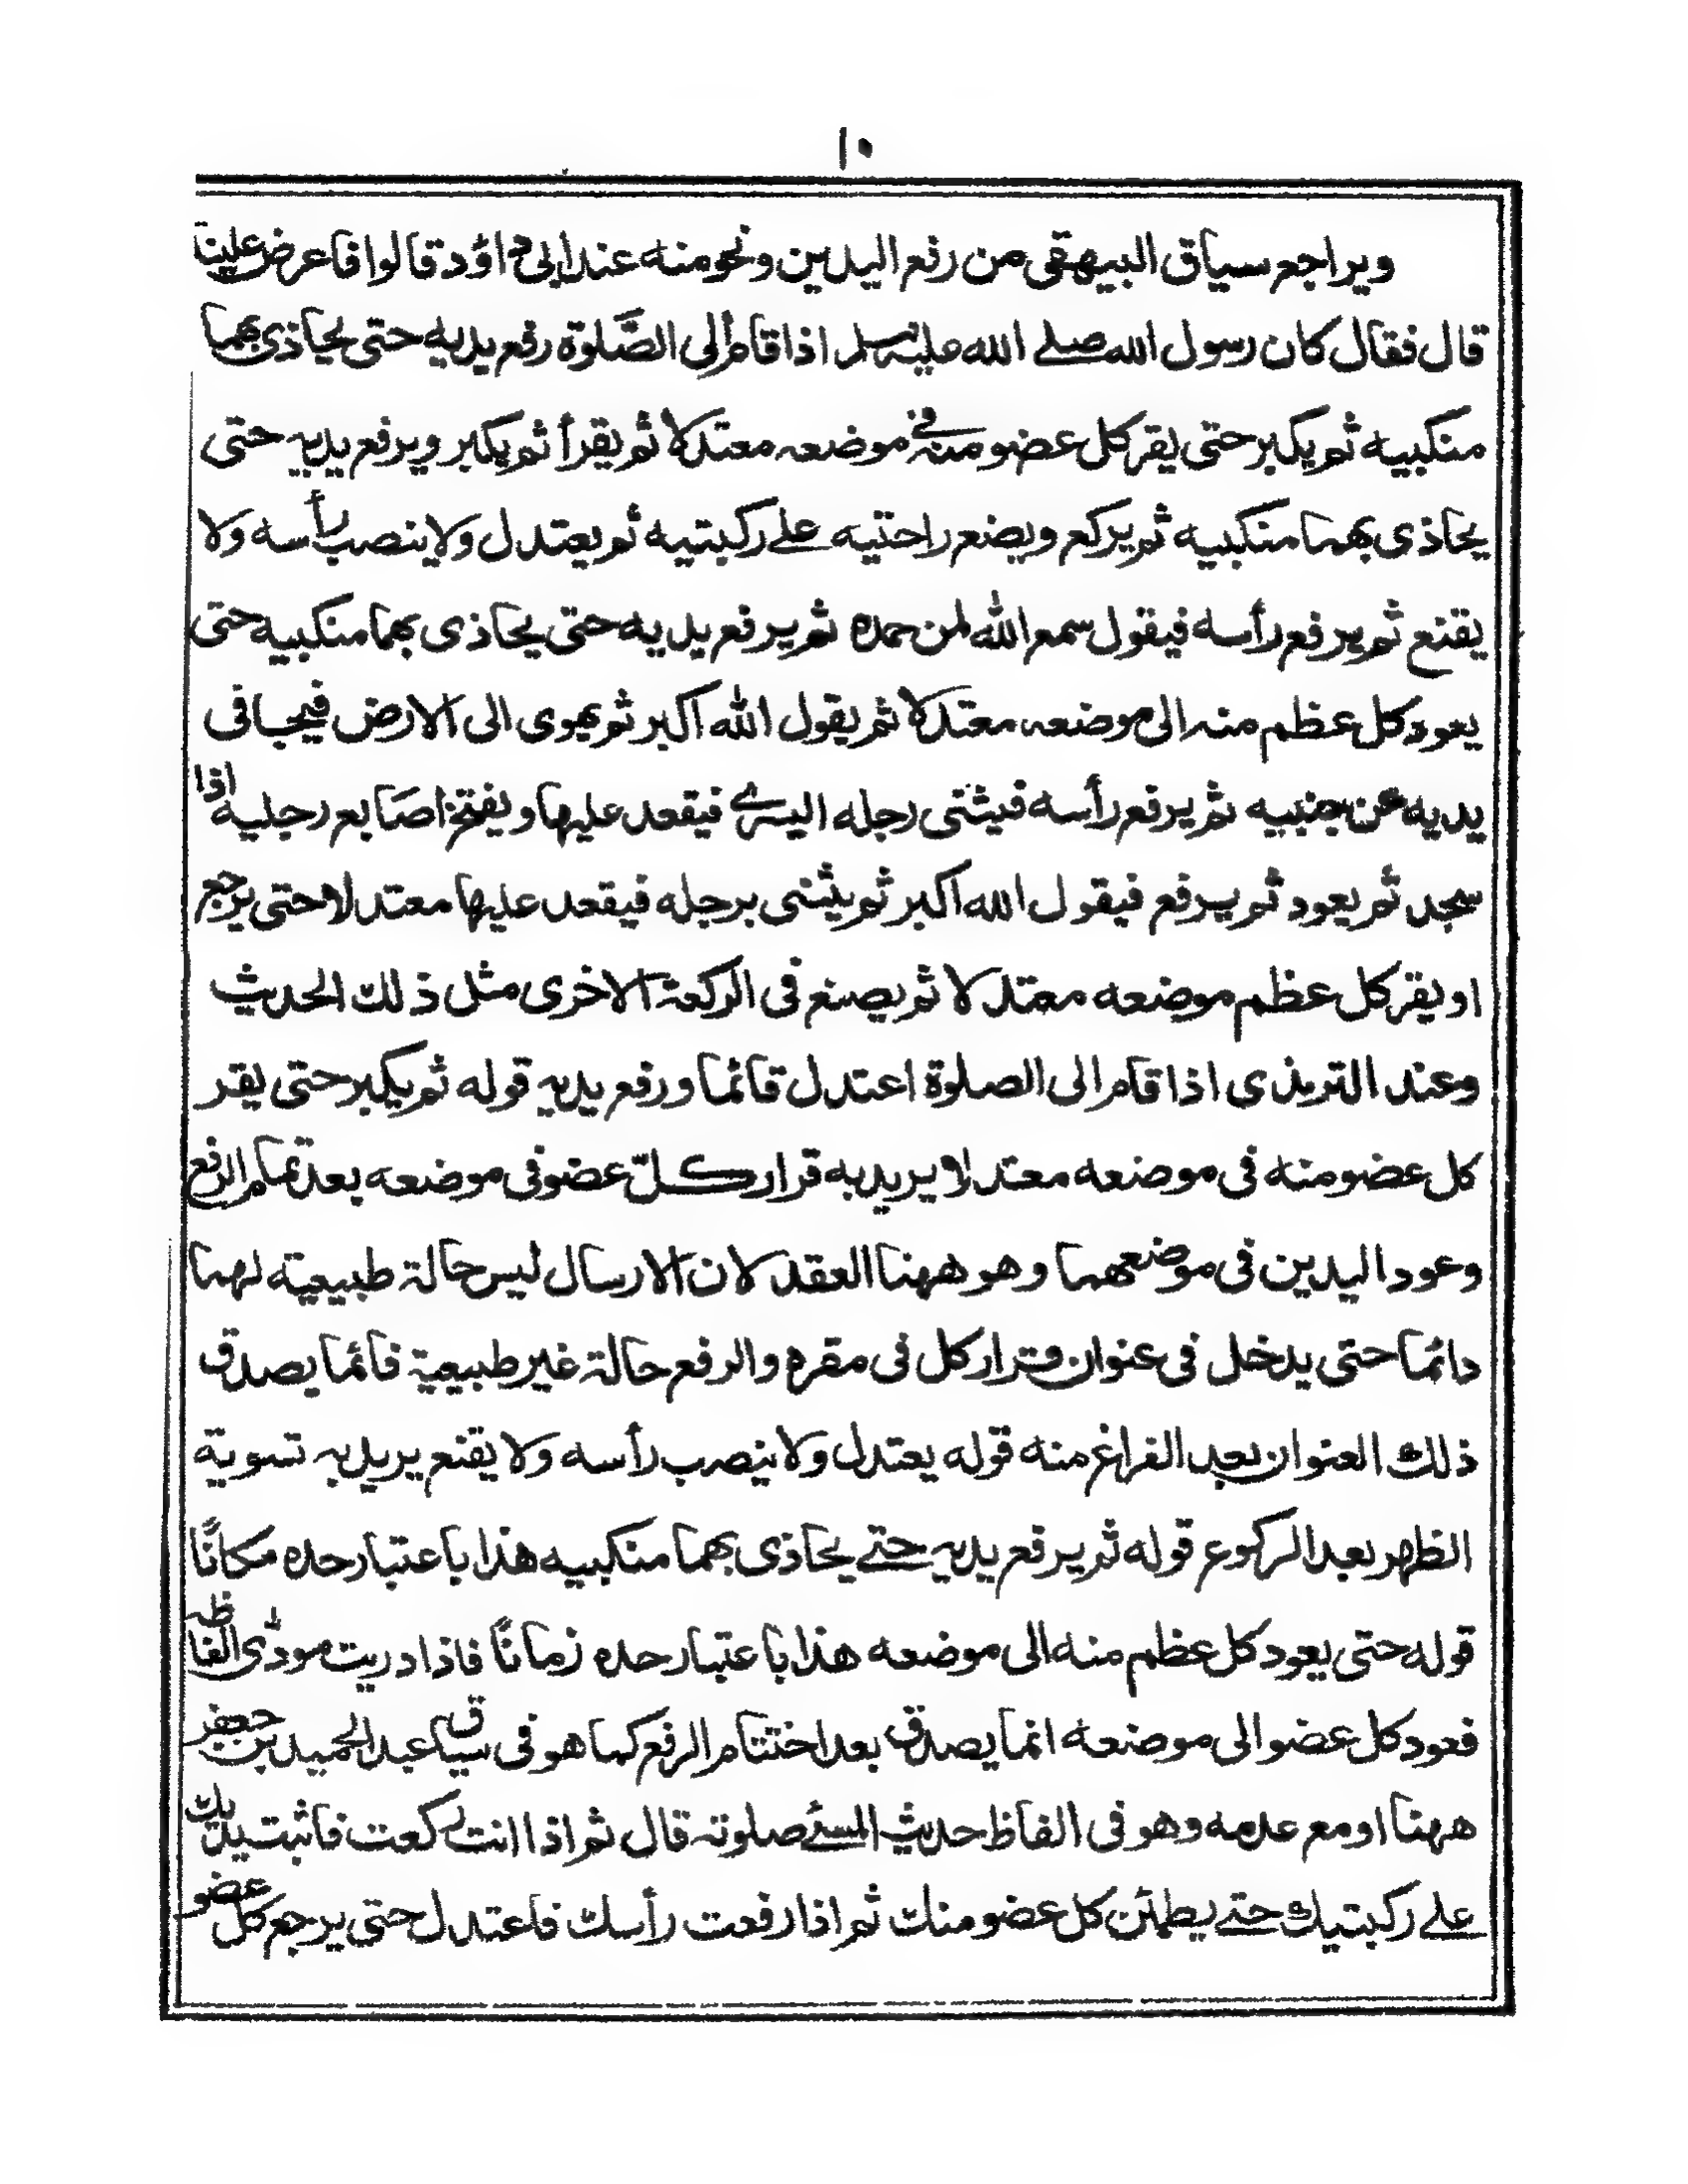 ١٠
ويراجع سياق البيهقى من رفع اليدين ونحومنه عندابى داؤد قالوا فاعرض علينا
قال فقال كان رسول الله صلے الله عليه وسلم اذا قام الى الصَّلوة رفع يديه حتى يحاذى بهما
منكبيه ثم يكبر حتى يقر كل عضو منه فى موضعه معتدلا ثم يقرأ ثم يكبر ويرفع يديه حتى
يحاذى بهما منكبيه ثم يركع ويضع راحتيه علے ركبتيه ثم يعتدل ولا ينصب رأسه ولا
يقنع ثم يرفع رأسه فيقول سمع الله لمن حمده ثم يرفع يديه حتى يحاذى بهما منكبيه حتى
يعود كل عظم منه الى موضعه معتدلا ثم يقول الله اكبر ثم يهوى الى الارض فيجافى
يديه عن جنبيه ثم يرفع رأسه فيثنى رجله اليسرے فيقعد عليها ويفتخ اصابع رجليه اذا
سجد ثم يعود ثم يرفع فيقول الله اكبر ثم يثنى برجله فيقعد عليها معتدلا حتى يرجع
او يقر كل عظم موضعه معتدلا ثم يصنع فى الركعة الاخرى مثل ذلك الحديث
وعند الترمذى اذا قام الى الصلوة اعتدل قائما ورفع يديه قوله ثم يكبر حتى يقر
كل عضو منه فى موضعه معتدلا يريد به قرار كلّ عضو فى موضعه بعد تمام الرفع
وعود اليدين فى موضعهما وهو ههنا العقد لان الارسال ليس حالة طبيعية لهما
دائما حتى يدخل فى عنوان قرار كل فى مقره والرفع حالة غير طبيعية فائما يصدق
ذلك العنوان بعد الفراغ منه قوله يعتدل ولا ينصب رأسه ولا يقنع يريد به تسوية
الظهر بعد الركوع قوله ثم يرفع يديه حتے يحاذى بهما منكبيه هذا باعتبار حده مكانًا
قوله حتى يعود كل عظم منه الى موضعه هذا باعتبار حده زمانًا فاذا دريت مودّى الفاظه
فعود كل عضو الى موضعه انما يصدق بعد اختتام الرفع كما هو فى سياق عبد الحميد بن جعفر
ههنا او مع عدمه وهو فى الفاظ حديث المسئ صلوته قال ثم اذا انت ركعت فاثبت يديك
علے ركبتيك حتے يطمئن كل عضو منك ثم اذا رفعت رأسك فاعتدل حتى يرجع كل عضو